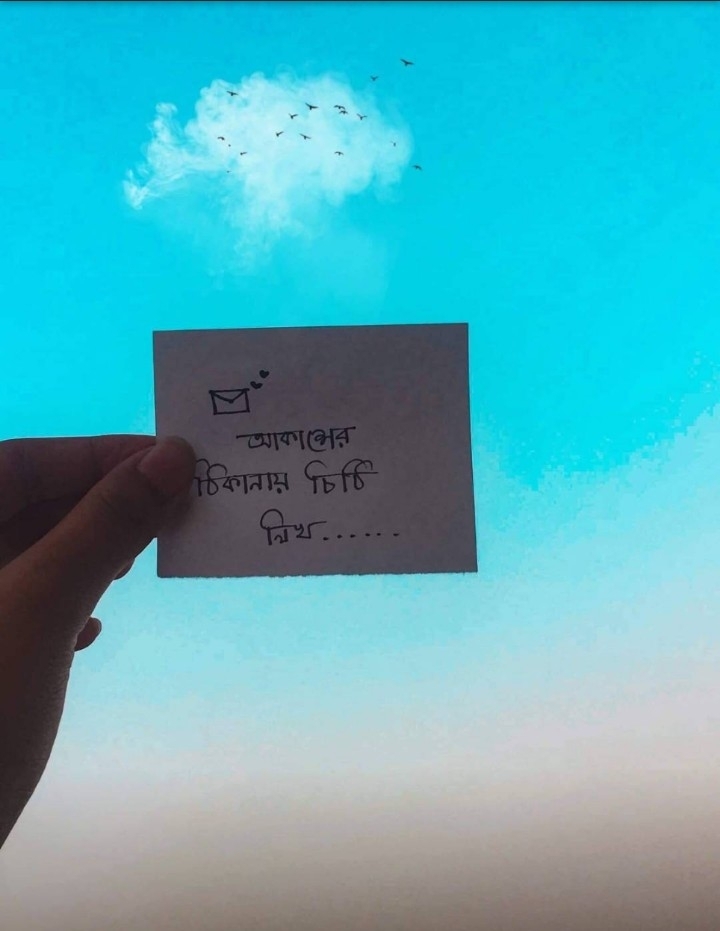 আকাশের
ঠিকানায় চিঠি
লিখ......